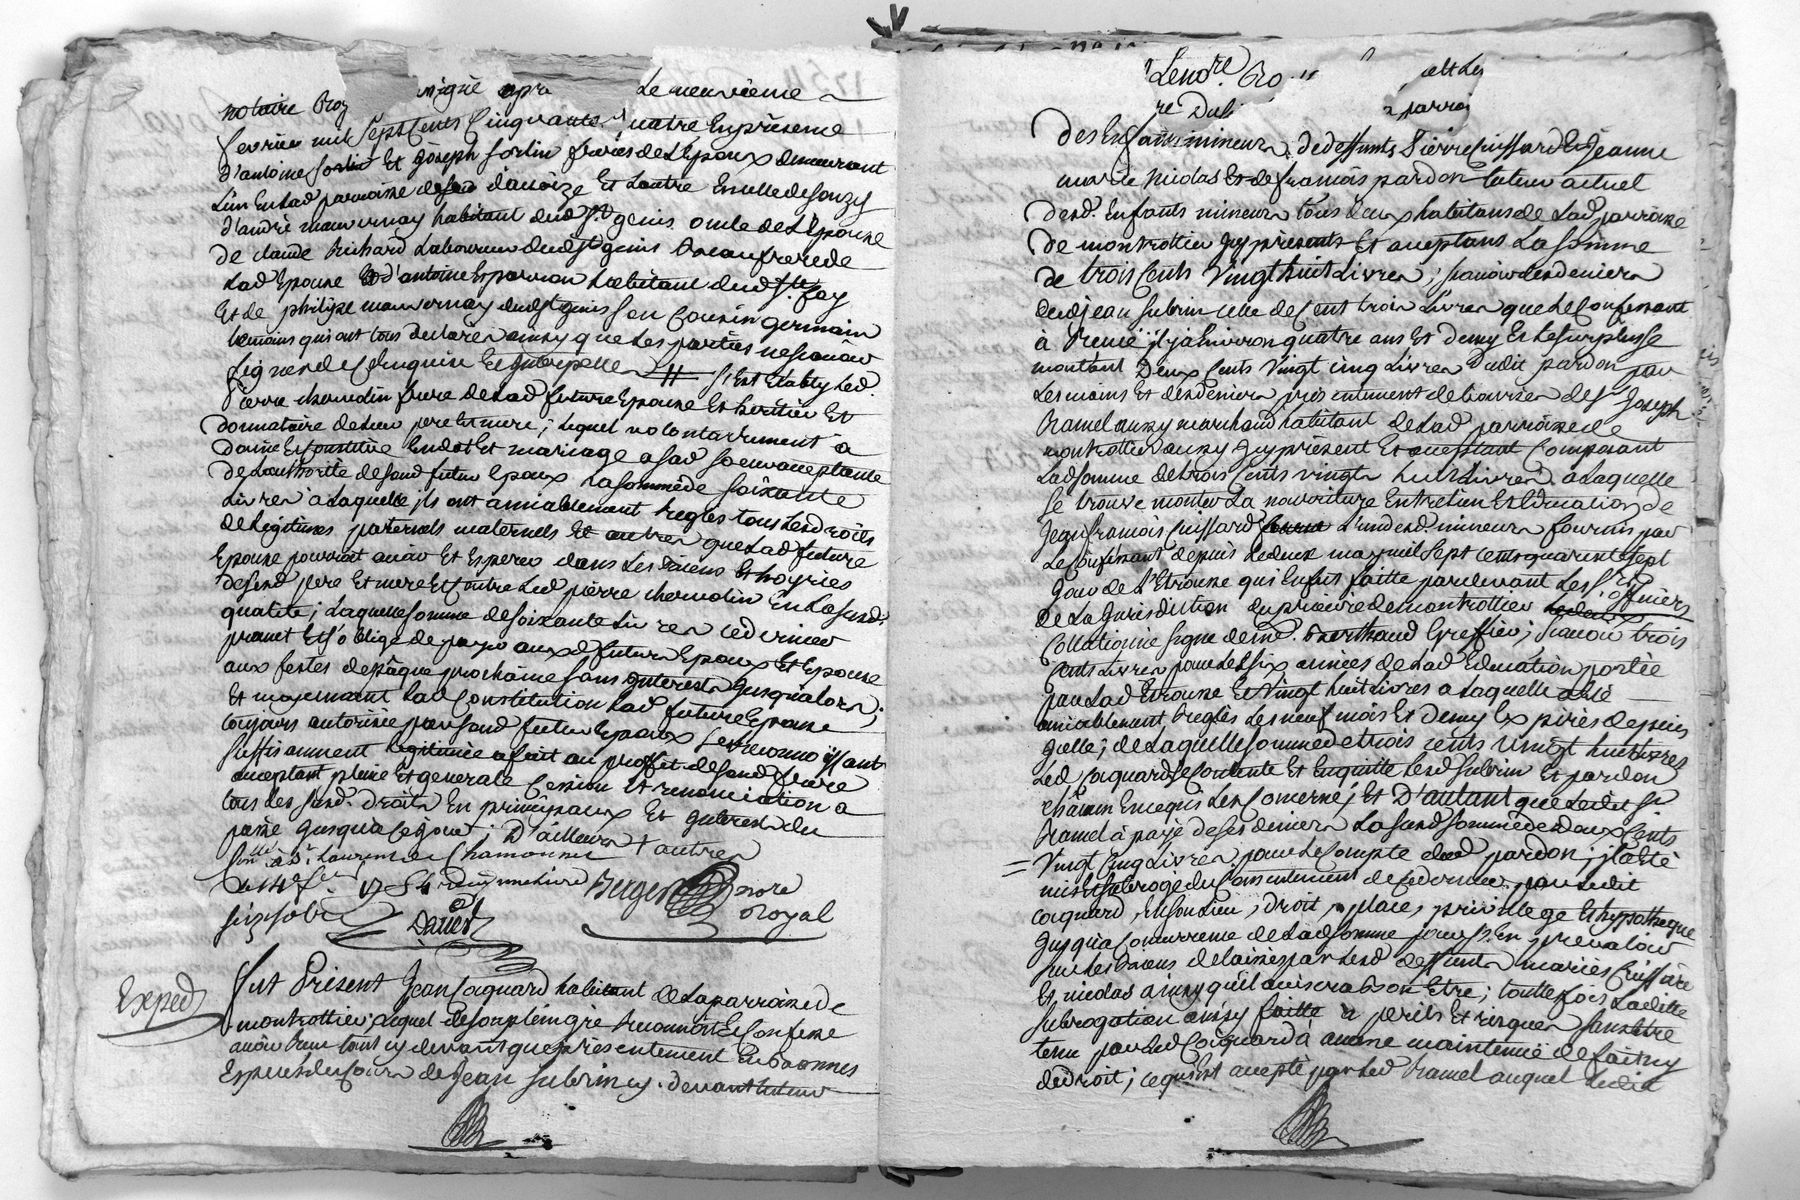 notaire Roy migné apré Le neuvieme
fevrier mil sept Cents Cinquante quatre En presence
d'antoine fortin Et joseph fortin freres de L'Epoux demeurant
L'un En lad paroisse de d'auoize Et Lautre En celle de Souzy
d'andré mauvernay habitant dud st genis oncle de L'Epouse
de claude Richard Laboureur dud st genis Beaufrere de
Lad Epouse Et d'antoine Esparron habitant dud ste foy
Et de philipe mauvernay dud st genis son Cousin germain
temoins qui ont tous declarés ainsy que Les parties ne sçauoir
signer de Ce Enquis Et Interpellés // s'Est Etably Led
pierre chermotin frere de Lad future Epouse Et heritier Et
donnataire de Leur pere Et mere; Lequel volontairement à
donné Et Constitué En dot Et mariage a sad soeur acceptante
de Lauthorité de sond futur Epoux La somme de soixante
Livres a Laquelle ils ont amiablement reglés tous Les droits
de Legitimes paternels maternels Et autres que Lad future
Epouse pourroit auoir Et Esperer dans Les Biens Et hoyries
desd pere Et mere Et Contre Led pierre chermotin En La susd
qualité; Laquelle somme de soixante Livres ce dernier
promet Et s'oblige de payer auxd futurs Epoux Et Epouse
aux festes de pâque prochaine sans Interests Jusqu'alors;
Et moyennant Lad Constitution Lad future Epouse
toujours autorisée par sond futur Epoux se reconnoissant
suffisamment Legitimée a fait au proffit de sond frere
acceptant pleine Et generale Cession Et renonciation a
tous Les susd. droits En principaux Et Interests du
passé Jusqu'a Ce jour; D'ailleurs + autres
Con.llé à St. Laurent de Chamousset
Le 14e fev 1754 reçu
six sols
Berger nore
Royal
Exped
Fut Présent Jean Coquard habitant de La parroisse de
montrottier; Lequel de son plein gré reconnoit Et Confesse
auoir reçu tant cy devant que présentement En bonnes
Especes du Cours de Jean Subrin cy. devant tuteur
des Enfants mineurs de deffunts Pierre Cuissard Et Jeanne
marie Nicolas Et de francois pardon tuteur actuel
desd. Enfants mineurs tous deux habitans de Lad parroisse
de montrottier Icy présents Et acceptans La somme
de trois Cents Vingt huit Livres; scauoir des deniers
dud jean subrin celle de Cent trois Livres que Le Confessant
à Receu il y a Environ quatre ans Et demy Et Le surplus se
montant Deux Cents Vingt cinq Livres dudit pardon par
Les mains Et des deniers présentement deboursés de sr. Joseph
Ramel aussy marchand habitant de Lad parroisse de
montrottier aussy Icy présent Et acceptant Composant
Lad somme de trois Cents vingt huit Livres a Laquelle
se trouve monter La nourriture Entretien Et Education de
Jean francois Cuissard L'un desd mineurs fournis par
Le Confessant depuis Le deux may mil sept cents quarente sept
jour de L'Etrousse qui En fut faitte pardevant Les srs. officiers
de La Jurisdiction du prieuré de montrottier
Collationné signé de me. Berthaud Greffier; scauoir trois
Cents Livres pour Les six années de Lad Education portée
par Lad Etrousse Et Vingt huit Livres a Laquelle a Eté
amiablement reglés Les neuf mois Et demy Expirés depuis
Jcelle; de Laquelle somme de trois cents Vingt huit Livres
Led Coquard se Contente Et En quitte Lesd subrin Et pardon
chacun En ce qui Les Concerne; Et D'autant que Ledit sr
Ramel à payé de ses deniers La susd somme de deux Cents
Vingt Cinq Livres pour Le compte dud pardon; il a Eté
mis Et subrogé du Consentement de ce dernier par Ledit
Coquard, En son Lieu, droit, place, privilege Et hypotheque
Jusqu'a Concurrence de Lad somme pour s'En prevaloir
sur Les Biens delaissés par Lesd deffunts mariés Cuissard
Et nicolas ainsy qu'il auisera bon Etre; touttefois Laditte
subrogation ainsy faitte a perils Et risques sans Etre
tenu par Led Coquard à aucune maintenüe de fait ny
de droit; ce qui Est accepté par Led Ramel auquel Ledit